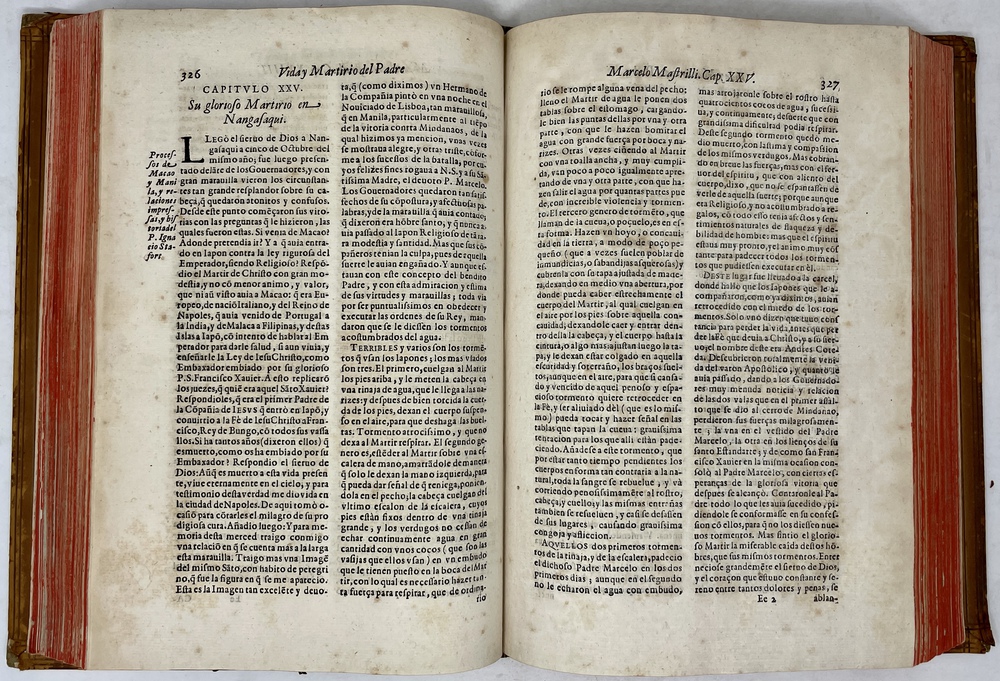 326
Vida y Martirio del Padre
CAPITVLO XXV.
Su glorioso Martirio en
Nangasaqui.
Proces-
sos de
Macao
y Mani
la, y re-
laciones
impres-
sas, y his
toria del
P. Igna
cio Sta-
fort.
LLEGÒ el sieruo de Dios a Nan-
gasaqui a cinco de Octubre del
mismo año; fue luego presen-
tado delāte de los Gouernadores, y con
gran marauilla vieron los circunstan-
tes tan grande resplandor sobre su ca-
beça, q̃ quedaron atonitos y confusos.
Desde este punto començaron sus vito-
rias con las preguntas q̃ le hizieron, las
quales fueron estas. Si venia de Macao?
Adonde pretendia ir? Y a q̃ auia entra-
do en Iapon contra la ley rigurosa del
Emperador, siendo Religioso? Respō-
dio el Martir de Christo con gran mo-
destia, y no có menor animo, y valor,
que ni auī visto auia a Macao: q̃ era Eu-
ropeo, de nació Italiano, y del Reino de
Napoles, q̃ auia venido de Portugal a
la India, y de Malaca a Filipinas, y destas
islas a Iapō, có intento de hablar al Em-
perador para darle salud, si aun viuia, y
enseñarle la Ley de Iesu Christo, como
Embaxador embiado por su glorioso
P.S. Francisco Xauier. A esto replicarō
los juezes, q̃ quiē era aquel Sāto Xauier?
Respondioles, q̃ era el primer Padre de
la Cōpañia de IESVS q̃ entrò en Iapō, y
conuirtio a la Fè de Iesu Christo a Fran-
cisco, Rey de Bungo, cō todos sus vassa-
llos. Si ha tantos años (dixeron ellos) q̃
es muerto, como os ha embiado por su
Embaxador? Respondio el sieruo de
Dios: Aũq̃ es muerto a esta vida presen
te, viue eternamente en el cielo, y para
testimonio desta verdad me dio vida en
la ciudad de Napoles. De aqui tomò o-
casiō para cōtarles el milagro de su pro
digiosa cura. Añadio luego: Y para me-
moria desta merced traigo conmigo
vna relaciō en q̃ se cuenta mas a la larga
esta marauilla. Traigo mas vna Imagē
del mismo Sāto, con habito de peregri
no, q̃ fue la figura en q̃ se me aparecio.
Esta es la Imagen tan excelēte y deuo-
ta, q̃ (como diximos) vn Hermano de
la Compañia pintò en vna noche en el
Nouiciado de Lisboa, tan marauillosa,
q̃ en Manila, particularmente al tiēpo
de la vitoria contra Mindanaos, de la
qual hizimos ya mencion, vnas vezes
se mostraua alegre, y otras triste, cōfor-
me a los sucessos de la batalla, por cu-
yos felizes fines rogaua a N.S. y a su Sā-
tissima Madre, el deuoto P. Marcelo.
Los Gouernadores quedaron tan satis-
fechos de su cōpostura, y afectuosas pa
labras, y de la marauilla q̃ auia contado,
q̃ dixeron era hōbre santo, y q̃ nunca a-
uia passado al Iapon Religioso de tan-
ta modestia y santidad. Mas que sus cō-
pañeros tenian la culpa, pues de aquella
suerte le auian engañado. Y aunque es-
tauan con este concepto del bendito
Padre, y con esta admiracion y estima
de sus virtudes y marauillas; toda via
por ser puntualissimos en obedecer y
executar las ordenes de su Rey, man-
daron que se le diessen los tormentos
acostumbrados del agua.
TERRIBLES y varios son los tormē-
tos q̃ vsan los Iapones; los mas vsados
son tres. El primero, cuelgan al Martir
los pies arriba, y le meten la cabeça en
vna tinaja de agua, que le llega a las na-
rizes: y despues de bien torcida la cuer-
da de los pies, dexan el cuerpo suspen-
so en el aire, para que deshaga las buel-
tas. Tormento atrocissimo, y que no
dexa al Martir respirar. El segundo ge-
nero es, estēder al Martir sobre vna es-
calera de mano, amarrādole de manera
q̃ solo le dexan la mano izquierda, para
q̃ pueda dar señal de q̃ reniega, ponien-
dola en el pecho; la cabeça cuelgan del
vltimo escalon de la escalera, cuyos
pies estàn fixos dentro de vna tinaja
grande, y los verdugos no cessan de
echar continuamente agua en gran
cantidad con vnos cocos (que son las
vasijas que ellos vsan) en vn embudo
que le tienen puesto en la boca del Mar
tir, con lo qual es necessario hazer tan-
ta fuerça para respirar, que de ordina-
rio
Marcelo Mastrilli. Cap. XXV.
327
rio se le rompe alguna vena del pecho:
lleno el Martir de agua le ponen dos
tablas sobre el estomago, cargando-
le bien las puntas dellas por vna y otra
parte, con que le hazen bomitar el
agua con grande fuerça por boca y na-
rizes. Otras vezes ciñendo al Martir
con vna toalla ancha, y muy cumpli-
da, van poco a poco igualmente apre-
tando de vna y otra parte, con que ha-
zen salir el agua por quantas partes pue
de, con increible violencia y tormen-
to. El tercero genero de tormēto, que
llaman de la cueua, o pocuelo, es en es-
ta forma. Hazen vn hoyo, o concaui-
dad en la tierra, a modo de poço pe-
queño (que a vezes suelen poblar de
inmundicias, o sabandijas asquerosas) y
cubrenla con su tapa ajustada de made-
ra, dexando en medio vna abertura, por
donde pueda caber estrechamente el
cuerpo del Martir; al qual cuelgan en
el aire por los pies sobre aquella con-
cauidad, dexandole caer y entrar den-
tro della la cabeça, y el cuerpo hasta la
cintura, o algo mas: ajustan luego la ta-
pa, y le dexan estar colgado en aquella
escuridad y soterraño, los braços suel-
tos, aunque en el aire, para que si cansa-
do y vencido de aquel penoso y espa-
cioso tormento quiere retroceder en
la Fè, y ser aliuiado dèl (que es lo mis-
mo) pueda tocar y hazer señal en las
tablas que tapan la cueua: grauissima
tentacion para los que alli estàn pade-
ciendo. Añadese a este tormento, que
por estar tanto tiempo pendientes los
cuerpos en forma tan contraria a la na-
tural, toda la sangre se rebuelue, y và
corriendo penosissimamēte al rostro,
cabeça, y cuello; y las mismas entrañas
tambien se resueluen, y casi se desasien
de sus lugares, causando grauissima
congoja y afliccion.
AQVELLOS dos primeros tormen-
tos de la tinaja, y de la escalera, padecio
el dichoso Padre Marcelo en los dos
primeros dias; aunque en el segundo
no le echaron el agua con embudo,
mas arrojaronle sobre el rostro hasta
quatrocientos cocos de agua, sucessi-
ua, y continuamente; de suerte que con
grandissima dificultad podia respirar.
Deste segundo tormento quedò me-
dio muerto, con lastima y compassion
de los mismos verdugos. Mas cobran-
do en breue las fuerças, mas con el fer-
uor del espiritu, que con aliento del
cuerpo, dixo, que no se espantassen de
verle de aquella suerte; porque aunque
era Religioso, y no acostumbrado a re-
galos, cō todo esso tenia afectos y sen-
timientos naturales de flaqueza y de-
bilidad de hombre: mas que el espiritu
estaua muy pronto, y el animo muy cōs
tante para padecer todos los tormen-
tos que pudiessen executar en èl.
DESTE lugar fue lleuado a la carcel,
donde hallò que los Iapones que le a-
compañaron, como ya diximos, auian
retrocedido con el miedo de los tor-
mentos. Solo vno dizen que tuuo cons
tancia para perder la vida, antes que per
der la Fè que deuia a Christo, y a su sier-
uo, el nombre deste era Andres Cote-
da. Descubrieron totalmente la veni-
da del varon Apostolico, y quanto le
auia passado, dando a los Gouernado-
res muy menuda noticia y relacion
de las dos valas que en el primer assal-
to que se dio al cerro de Mindanao,
perdieron sus fuerças milagrosamen-
te; la vna en el vestido del Padre
Marcelo, la otra en los lienços de su
santo Estandarte; y de como san Fran-
cisco Xauier en la misma ocasion conso-
solò al Padre Marcelo, con ciertas es-
peranças de la gloriosa vitoria que
despues se alcançò. Contaronle al Pa-
dre todo lo que les auia sucedido, pi-
diendole se conformasse en su confes-
sion cō ellos, para q̃ no los diessen nue-
uos tormentos. Mas sintio el glorio-
so Martir la miserable caida destos hō-
bres, que sus mismos tormentos. Enter
neciose grandemēte el sieruo de Dios,
y el coraçon que estuuo constante y se-
reno entre tantos dolores y penas, se
Ee 2
ablan-